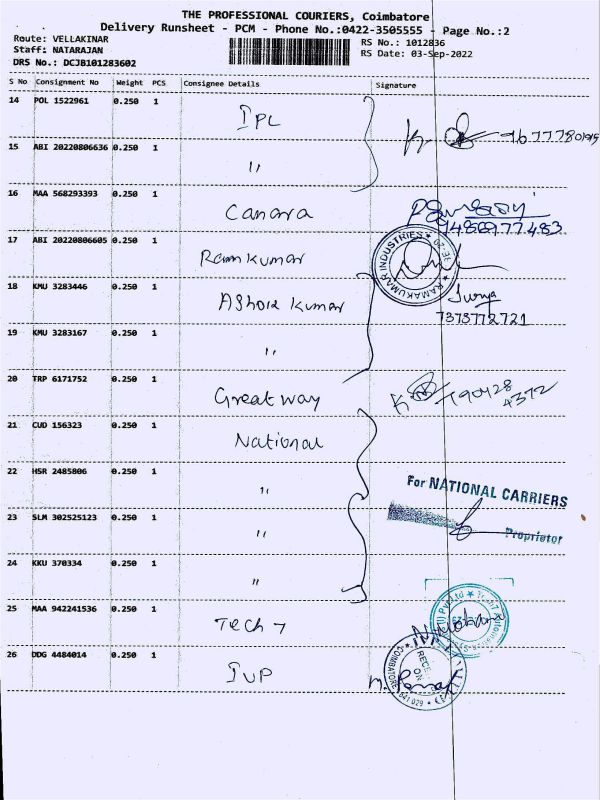 THE PROFESSIONAL COURIERS, Coimbatore
Delivery Runsheet - PCM - Phone No.:0422-3505555 - Page No.:2
Route: VELLAKINAR RS No.: 1012836
Staff: NATARAJAN RS Date: 03-Sep-2022
DRS No.: DCJB101283602
S No Consignment No Weight PCS Consignee Details Signature
14 POL 1522961 0.250 1 IPL
15 ABI 20220806636 0.250 1 "
16 MAA 568293393 0.250 1 Canara
9486977483
17 ABI 20220806605 0.250 1 Ramkumar RAMAKUMAR INDUSTRIES
18 KMU 3283446 0.250 1 Ashok Kumar Surya
7373772721
19 KMU 3283167 0.250 1 "
20 TRP 6171752 0.250 1 Great way 790428
4372
21 CUD 156323 0.250 1 National
22 HSR 2485806 0.250 1 "
For NATIONAL CARRIERS
23 SLM 302525123 0.250 1 "
Proprietor
24 KKU 370334 0.250 1 "
25 MAA 942241536 0.250 1 Tech 7
26 DDG 4484014 0.250 1 IVP